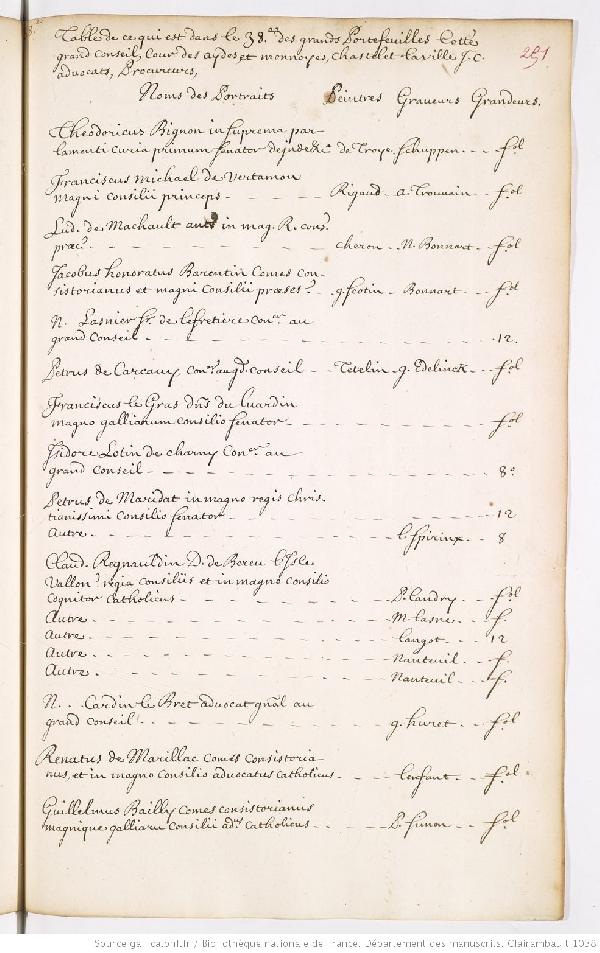 Table de ce qui est dans le 38.e des grands Portefeuilles cotté
grand Conseil, Cour des aydes et monnoyes, Chastelet la ville J. C.
advocats, Procureurs,
251
Noms des Portraits Peintres Graveurs Grandeurs.
Theodoricus Bignon in suprema par-
lamenti curia primum senator de Troye. Schuppen. - - fol
Franciscus michael de Vertamon
magni consilii princeps - - - Rigaud - a. Trouvain - - fol
Lud. de Machault in mag. R. cons.
præs. - - - cheron - N. Bonnart - - fol
Jacobus honoratus Barentin Comes con-
sistorianus et magni Consilii præses - g. scotin - Bonnart - - fol
N. Lasnier Sr. de Lefretiere Con.er au
grand Conseil - - - 12.
Petrus de Carcauy con.er au gd. conseil - Tetelin - g. Edelinck - - fol
Franciscus le Gras dns du Luardin
magno galliarum consilio senator - - - fol
Isidore Lotin de charny Con.er au
grand Conseil - - - 8o
Petrus de Maridat in magno regis chris-
tianissimi Consilio senator - - - 12
Autre - - - l. spirinx - - 8
Claud. Regnauldin D. de Bereu
Vallon regia consiliis et in magno consilio
Cognitor Catholicus - - - P. Landry - - fol
Autre - - - M. Lasne - - f.
Autre - - - Langot - - 12
Autre - - - Nanteuil - - f.
Autre - - - Nanteuil - - f.
N. . Cardin le Bret advocat gñal au
grand conseil - - - g. huret - - fol
Renatus de Marillac comes consistoria-
nus, et in magno Consilio advocatus catholicus - - - Lenfant - - fol.
Guillelmus Bailly comes consistorianus
magnique galliaru Consilii ad. Catholicus - - - P. simon - - fol
Source gallica.bnf.fr / Bibliothèque nationale de France. Département des manuscrits. Clairambault 1038